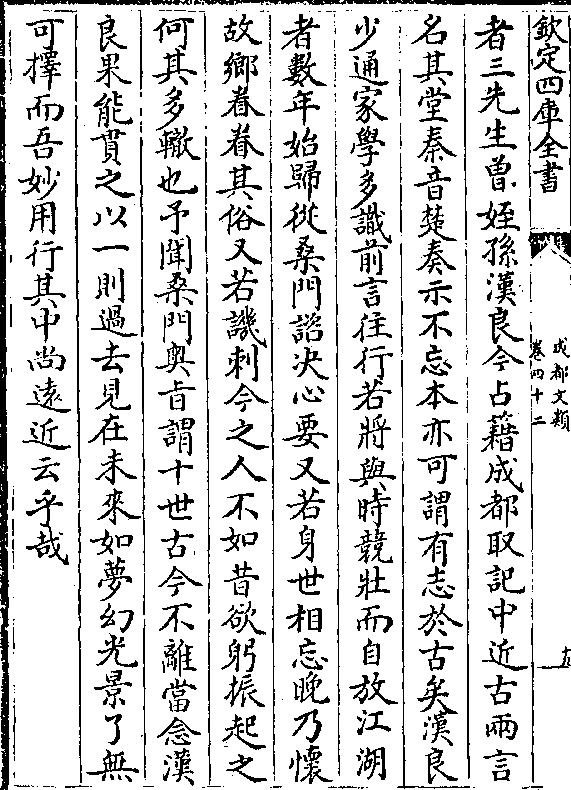 欽定四庫全書
成都文類
卷四十二
十五
者三先生曾姪孫漢良今占籍成都取記中近古兩言
名其堂秦音楚奏示不忘本亦可謂有志於古矣漢良
少通家學多識前言往行若將與時競壯而自放江湖
者數年始歸從桑門諮決心要又若身世相忘晚乃懷
故鄉眷眷其俗又若譏刺今之人不如昔欲躬振起之
何其多轍也予聞桑門奥旨謂十世古今不離當念漢
良果能貫之以一則過去見在未來如夢幻光景了無
可擇而吾妙用行其中尚遠近云乎哉